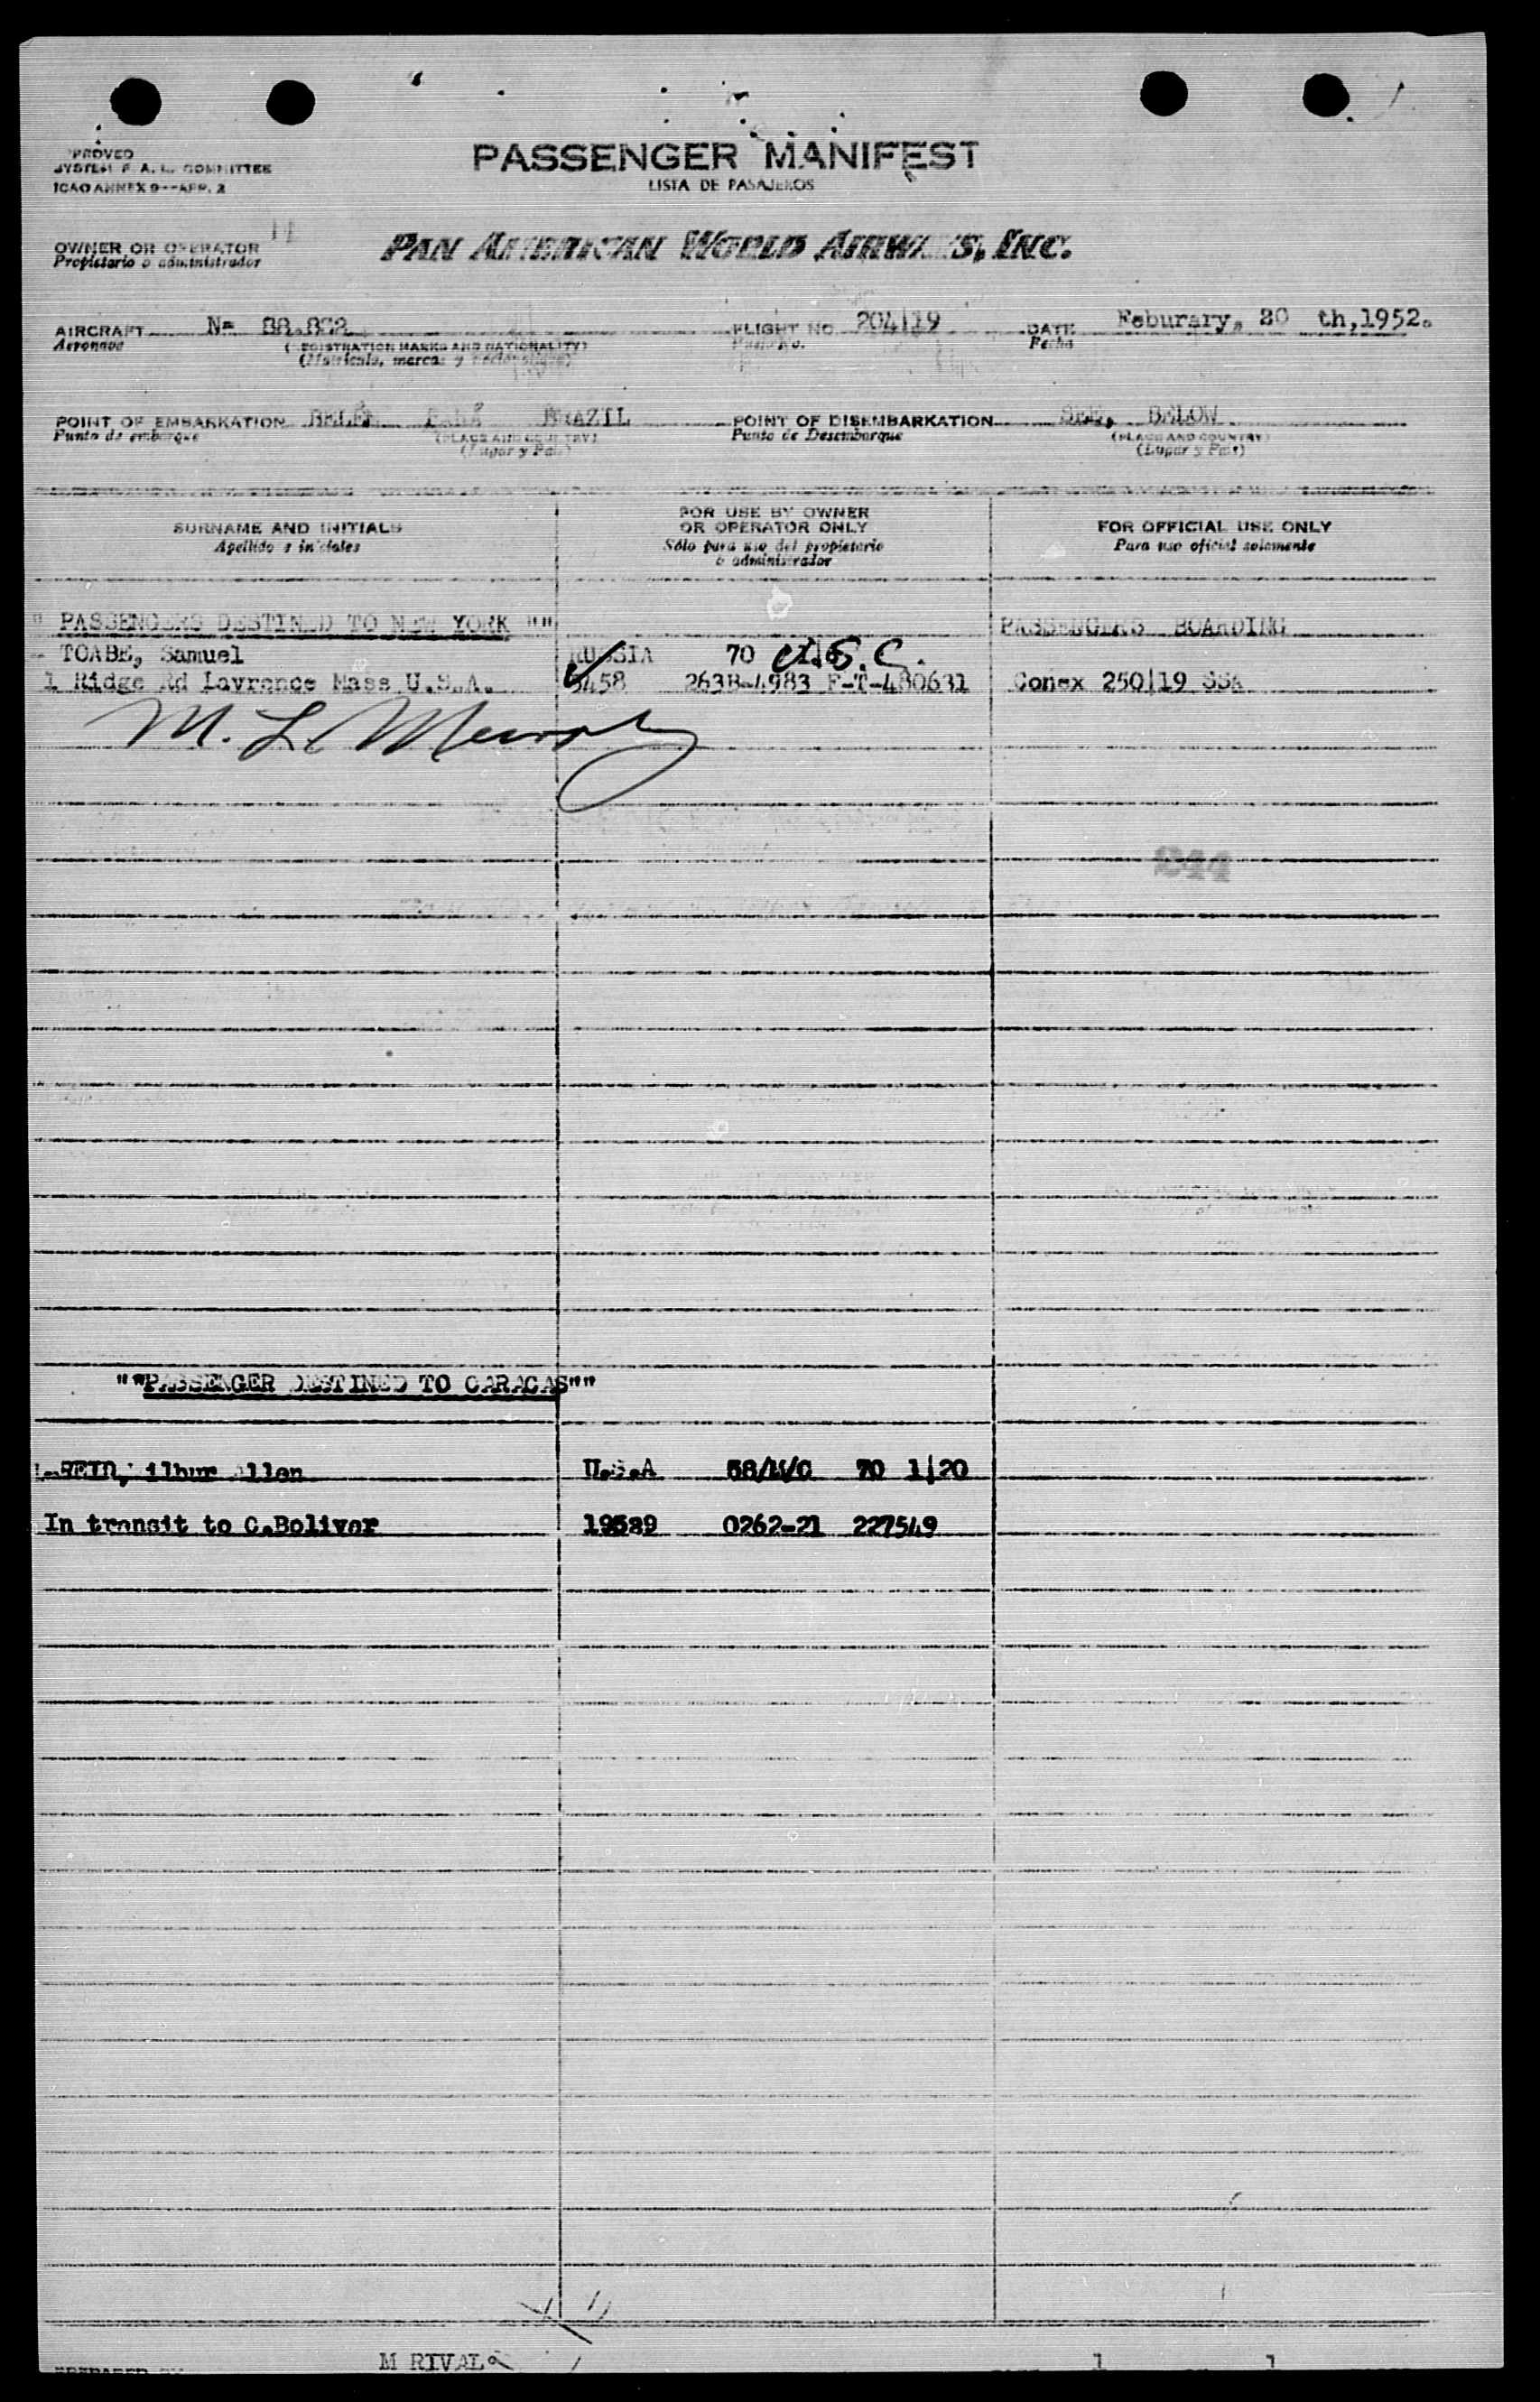 PASSENGER MANIFEST
LISTA DE PASAJEROS
SYSTEM F. A. L. COMMITTEE
ICAO ANNEX 9--APP. 2
OWNER OR OPERATOR
Propietario o administrador
PAN AMERICAN WORLD AIRWAYS, INC.
AIRCRAFT N= FLIGHT NO. 204|19 DATE Feburary, 20 th,1952.
Aeronave (REGISTRATION MARKS AND NATIONALITY) Fecha
(Matricula, marcas y nacionalidad)
POINT OF EMBARKATION BELÉM PARÁ BRAZIL POINT OF DISEMBARKATION SEE, BELOW
Punto de embarque (PLACE AND COUNTRY) Punto de Desembarque (PLACE AND COUNTRY)
(Lugar y Pais) (Lugar y Pais)
SURNAME AND INITIALS FOR USE BY OWNER OR OPERATOR ONLY FOR OFFICIAL USE ONLY
Apellido e iniciales Sólo para uso del propietario o administrador Para uso oficial solamente
" PASSENGERS DESTINED TO NEW YORK "" PASSENGERS BOARDING
TOABE, Samuel RUSSIA 70 U.S.C.
1 Ridge Rd Lavrence Mass U.S.A. 5458 263B-4983 F-T-480631 Conex 250|19 SSA
M. L. Murphy
244
""PASSENGER DESTINED TO CARACAS""
REID, Wilbur Allen U.S.A 58/W/C 70 1|20
In transit to C.Bolivar 19589 0262-21 227549
PREPARED BY M RIVAL 1 1